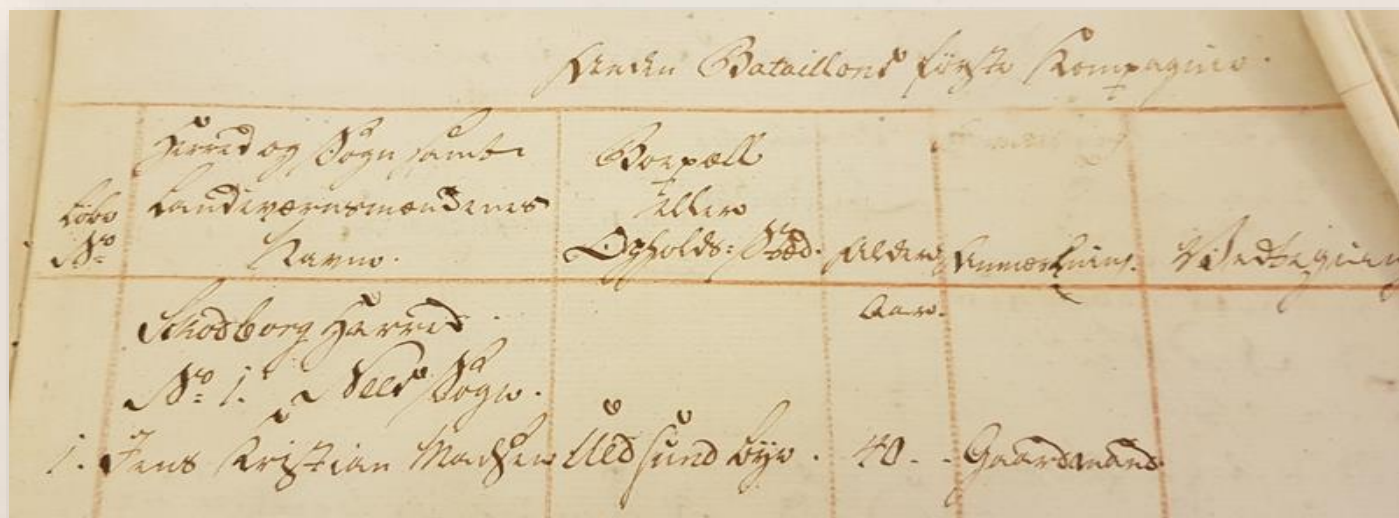 Anden Bataillons første Kompagnie.
Løbe
No
Herred og Sogn samt
Landeværnsmændenes
Navne.
Bopæll
eller
Opholds: Stæd.
Alder
Anmærkning.
Vedtegning
Aar.
Skodborg Herred
No 1. Nees Sogn.
1. Jens Kristian Madsen Ued Sund Bye. 40. Gaardmand